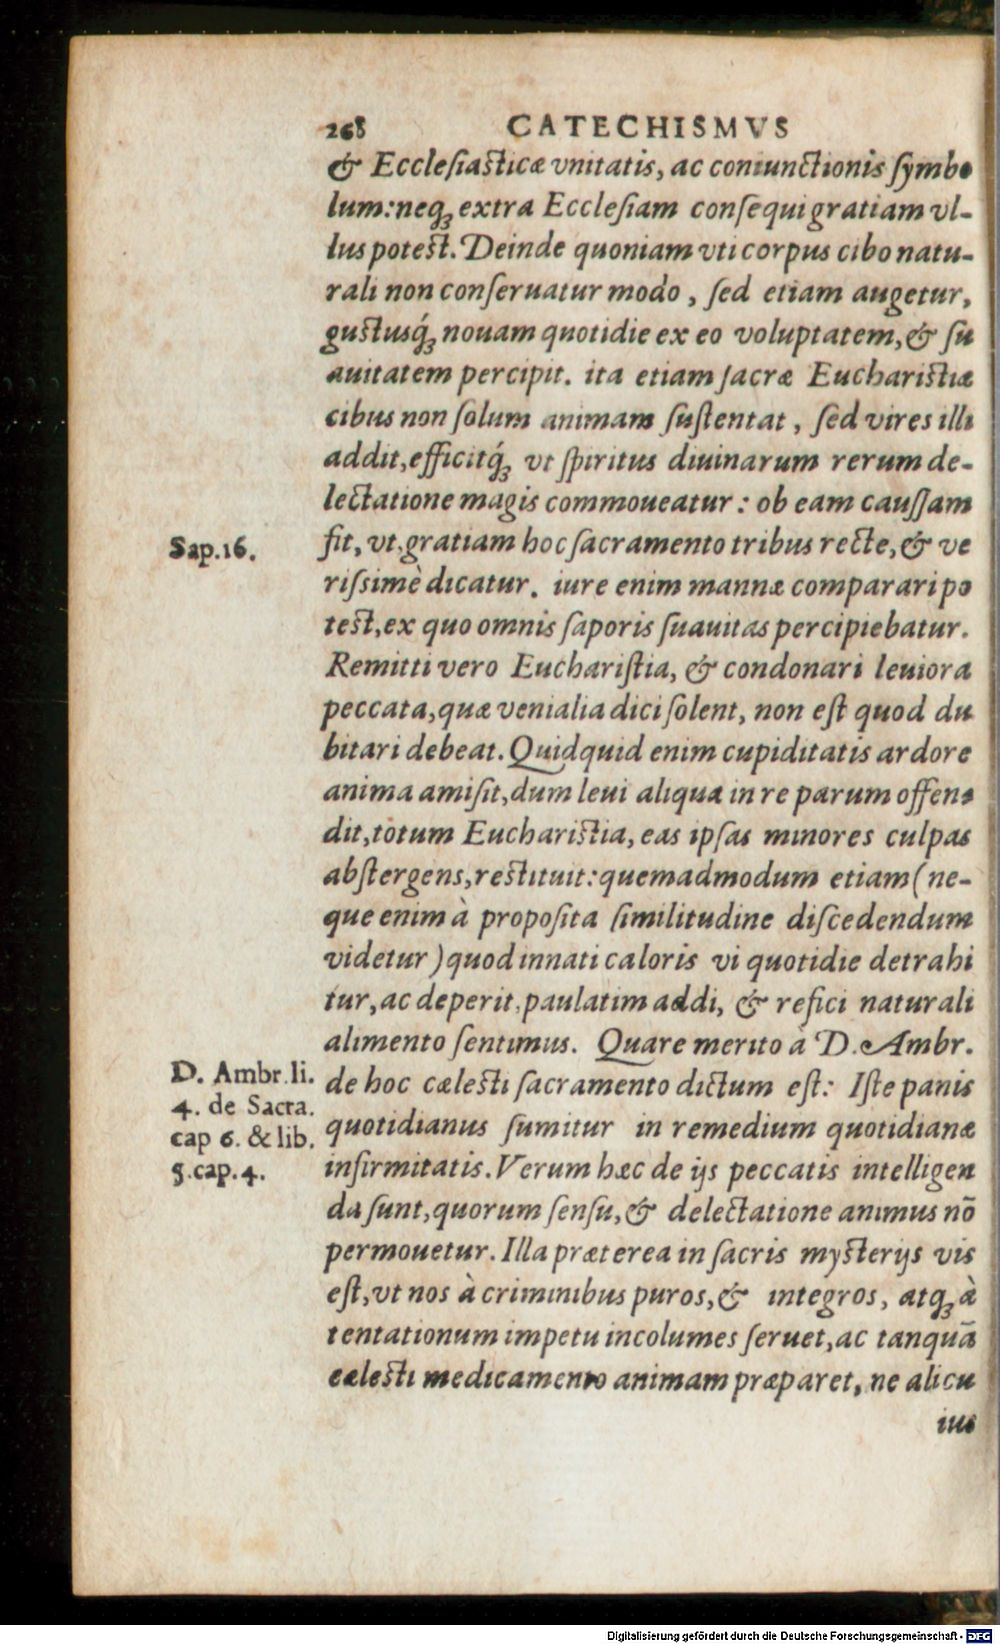 268 CATECHISMVS
& Ecclesiasticæ vnitatis, ac coniunctionis symbo
lum: neq; extra Ecclesiam consequi gratiam vl-
lus potest. Deinde quoniam vti corpus cibo natu-
rali non conseruatur modo, sed etiam augetur,
gustusq́; nouam quotidie ex eo voluptatem, & su
auitatem percipit. ita etiam sacræ Eucharistiæ
cibus non solum animam sustentat, sed vires illi
addit, efficitq́; vt spiritus diuinarum rerum de-
lectatione magis commoueatur: ob eam caussam
Sap.16.
fit, vt gratiam hoc sacramento tribus recte, & ve
rissimè dicatur. iure enim mannæ comparari po
test, ex quo omnis saporis suauitas percipiebatur.
Remitti vero Eucharistia, & condonari leuiora
peccata, quæ venialia dici solent, non est quod du
bitari debeat. Quidquid enim cupiditatis ardore
anima amisit, dum leui aliqua in re parum offen-
dit, totum Eucharistia, eas ipsas minores culpas
abstergens, restituit: quemadmodum etiam (ne-
que enim à proposita similitudine discedendum
videtur) quod innati caloris vi quotidie detrahi
tur, ac deperit, paulatim addi, & refici naturali
alimento sentimus. Quare merito à D. Ambr.
D. Ambr. li.
4. de Sacra.
cap 6. & lib.
5. cap. 4.
de hoc cælesti sacramento dictum est: Iste panis
quotidianus sumitur in remedium quotidianæ
infirmitatis. Verum hæc de ijs peccatis intelligen
da sunt, quorum sensu, & delectatione animus nō
permouetur. Illa præterea in sacris mysterijs vis
est, vt nos à criminibus puros, & integros, atq; à
tentationum impetu incolumes seruet, ac tanquā
cælesti medicamento animam præparet, ne alicu
ius
Digitalisierung gefördert durch die Deutsche Forschungsgemeinschaft - DFG